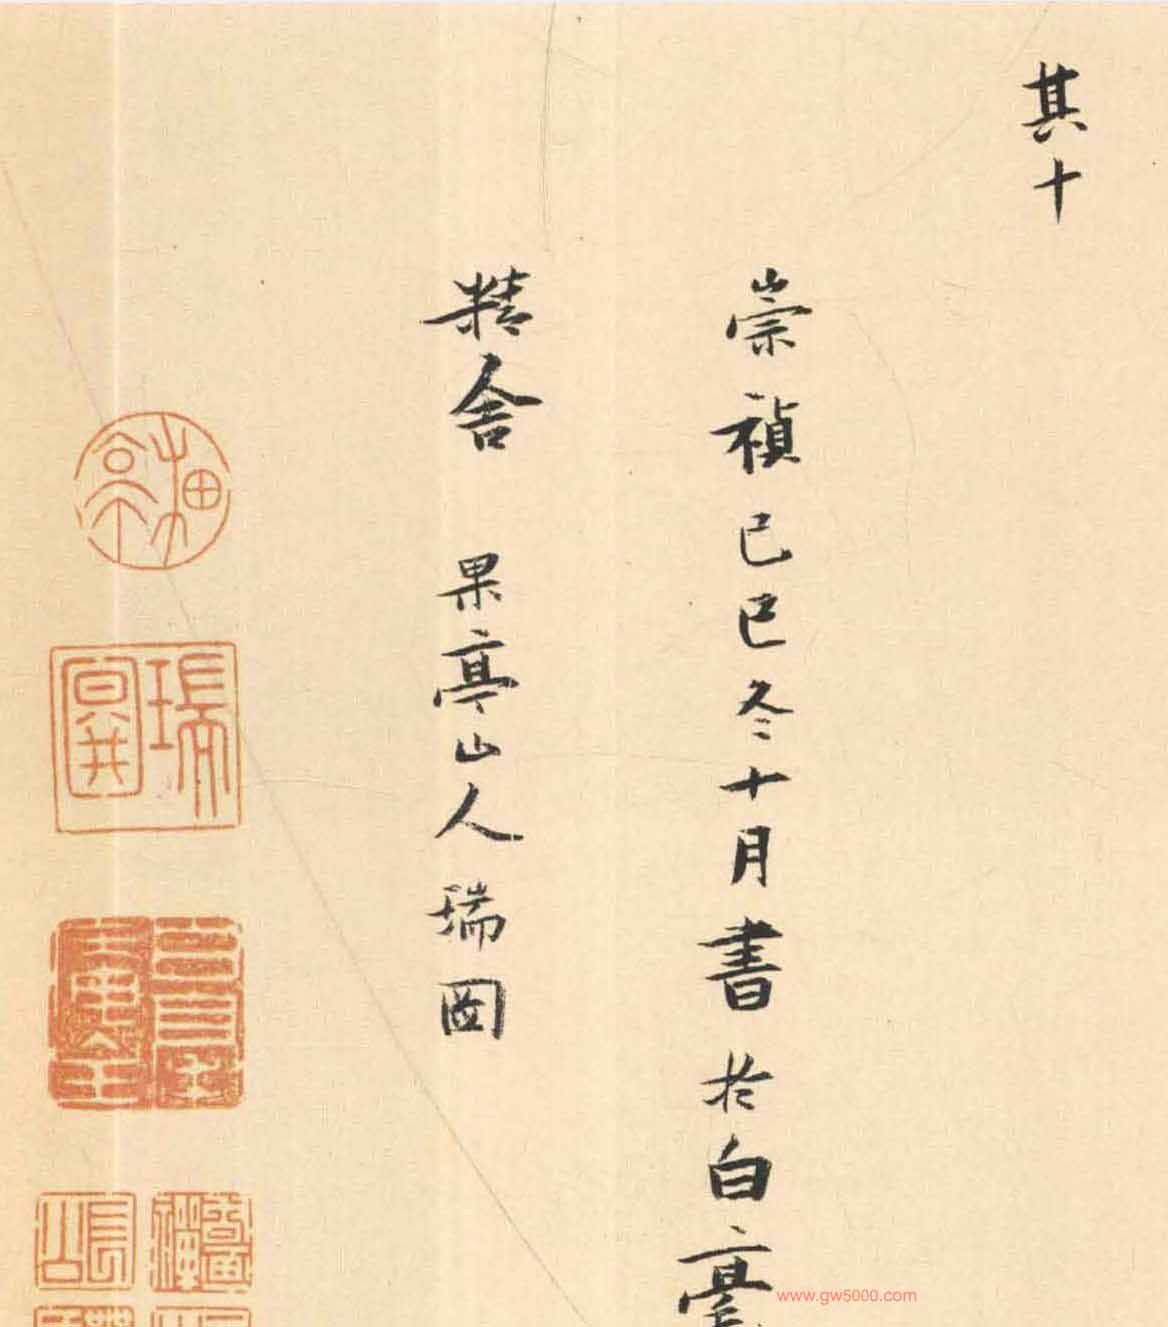 其十
崇禎己巳冬十月書於白毫
精舍 果亭山人瑞圖
瑞圖
www.gw5000.com